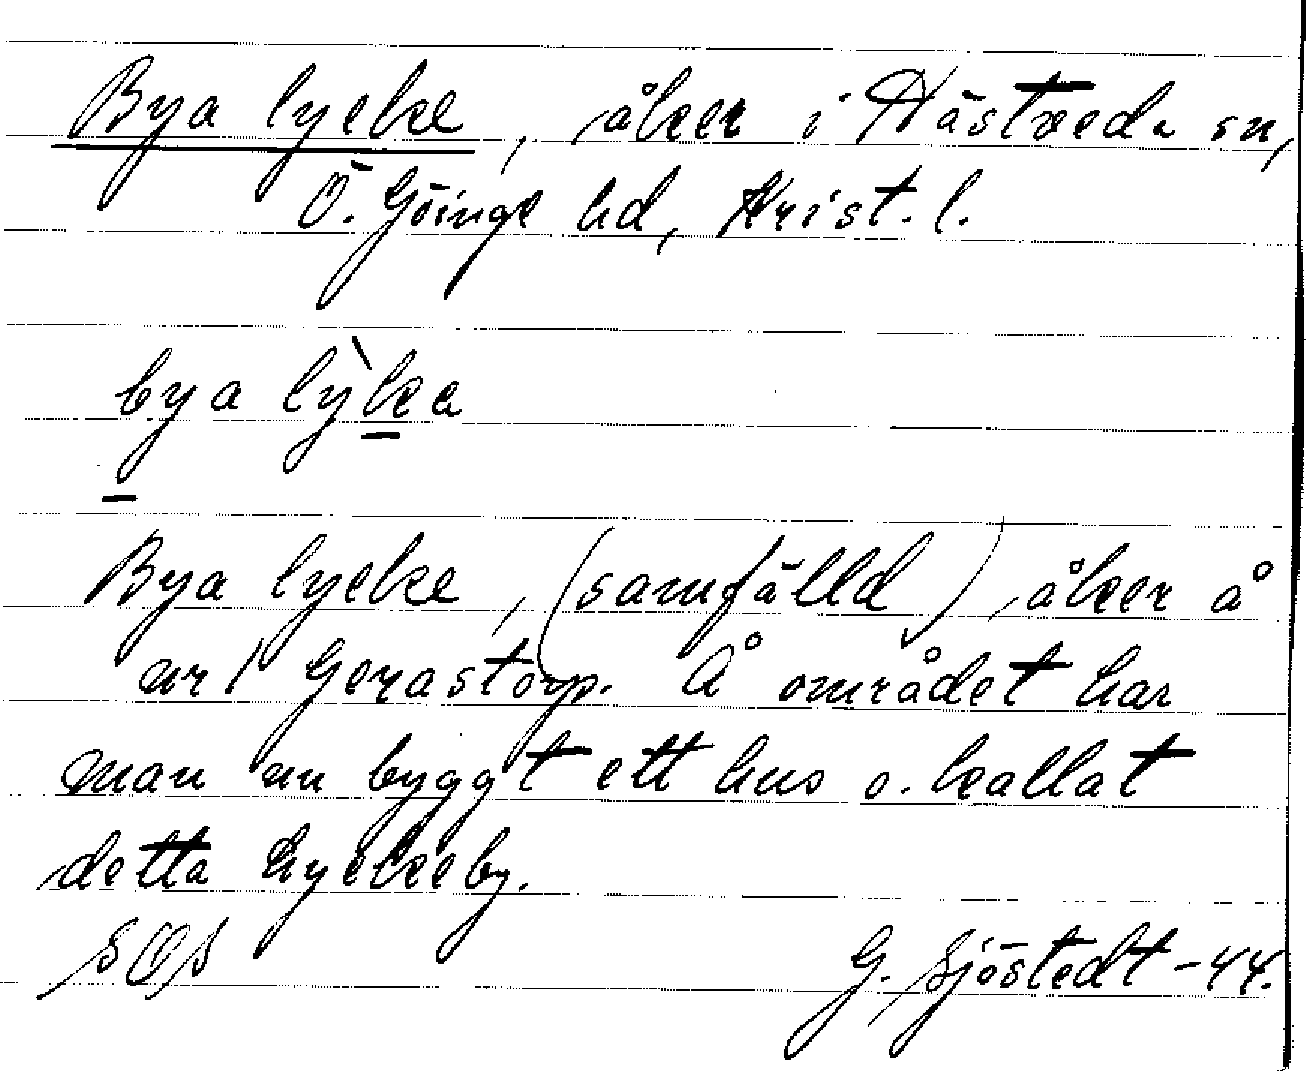 Bya lycke, åker i Hästveda sn,
Ö. Göinge hd, Krist. l.
bya lỳka
Bya lycke, (samfälld), åker å
nr 1 Gerastorp. Å området har
man nu byggt ett hus o. kallat
detta Lyckeby.
G. Sjöstedt -44.